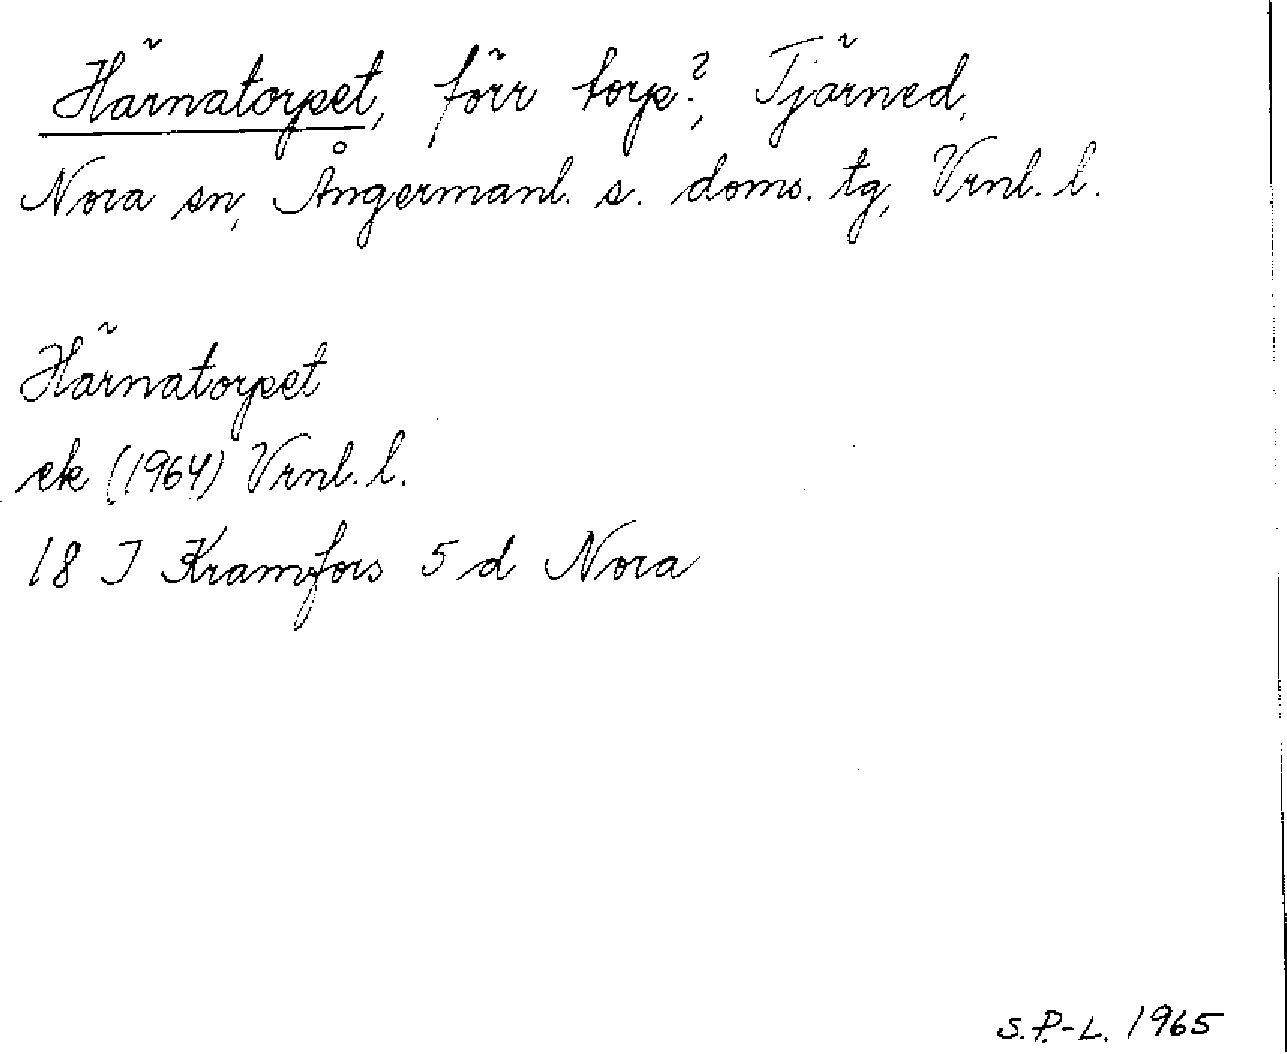 Härnatorpet, förr torp?, Tjärned,
Nora sn, Ångermanl. s. doms. tg, Vrnl. l.
Härnatorpet
ek (1964) Vrnl. l.
18 J Kramfors 5 d Nora
S.P-L. 1965